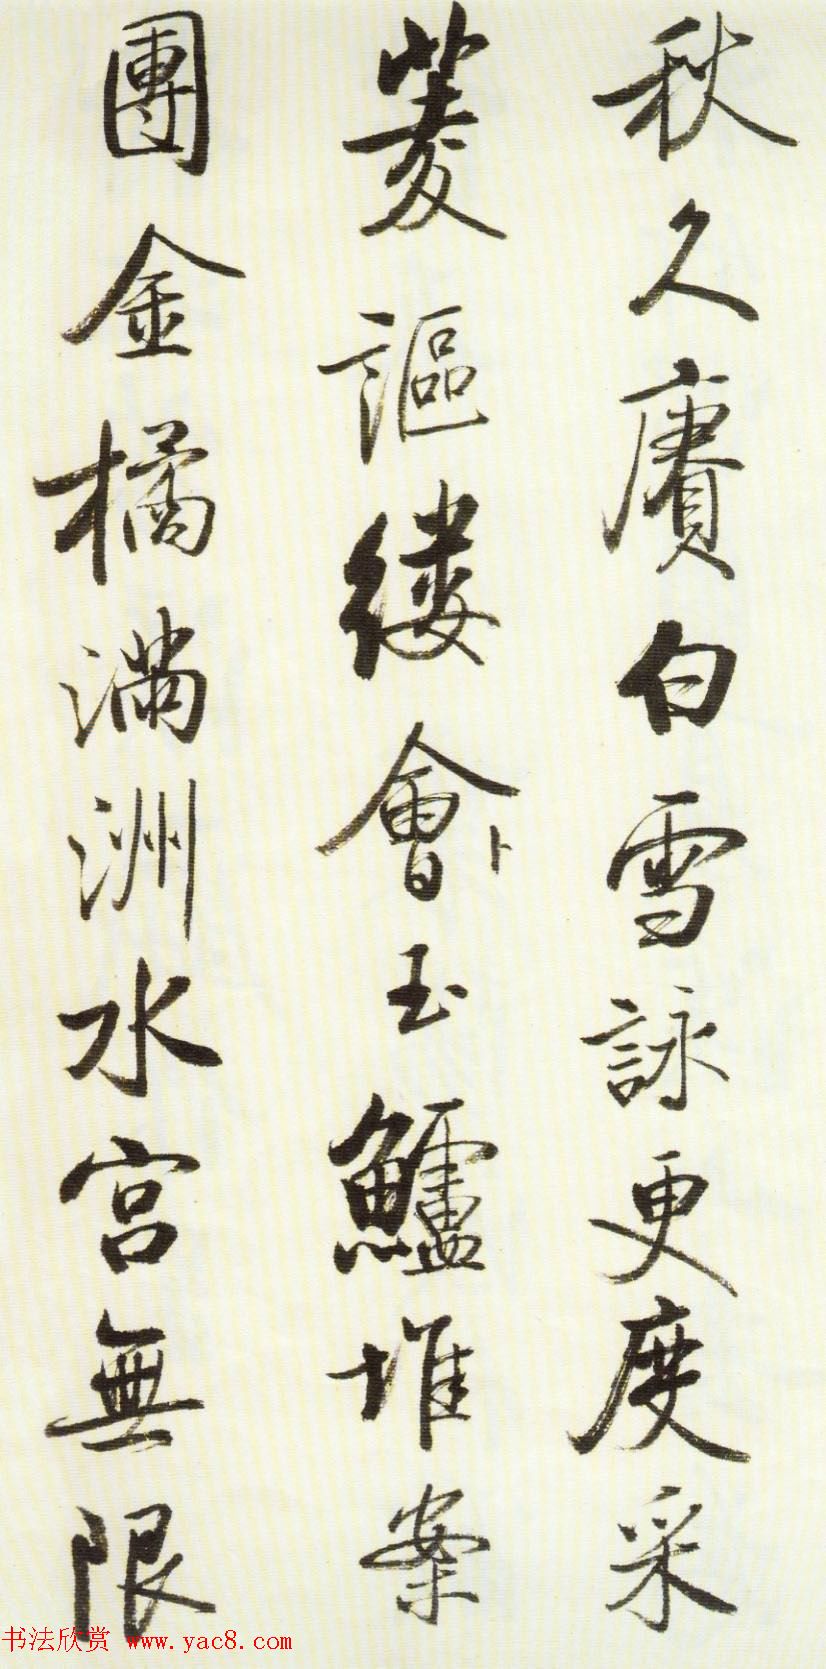 秋久賡白雪詠更度采
菱謳縷會卜玉鱸堆案
團金橘满洲水宫無限
书法欣赏 www.yac8.com